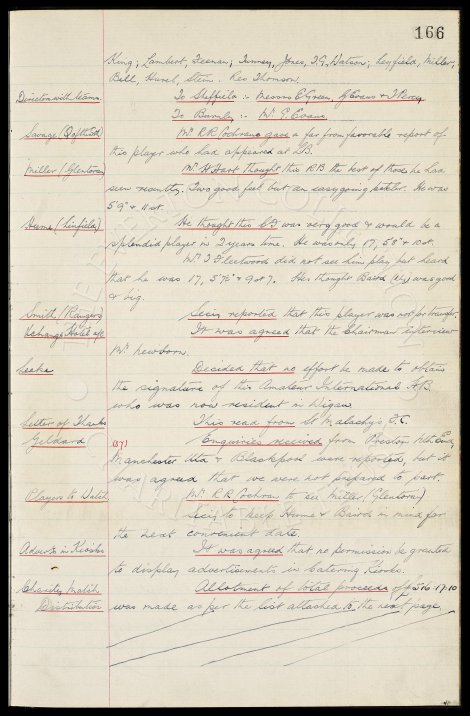 166
King; Lambert, Feenan; Tunney, Jones, T.G, Watson; Leyfield, Miller,
Bell, Hurel, Stein. Res Thomson.
Directors with teams To Sheffield :- Messrs C Green, G Evans & J Percy
To Burnley :- Mr. G. Evans
Savage (Q of the Sth) Mr. R.R. Cochrane gave a far from favorable report of
this player who had appeared at LB.
Miller (Glentoran) Mr. H Hart thought this RB the best of those he had
seen recently. Two good feet but an easy going settler. He was
5'9" & 11 st.
Hume (Linfield) He thought this CF was very good & would be a
splendid player in 2 years time. He was only 17, 5'8" & 10 st.
Mr. J Fleetwood did not see him play but heard
that he was 17, 5'7½" & 9 st 7. He thought Baird was good
& big.
Smith (Rangers) Secy reported that this player was not for transfer.
Xchange Hotel a/c It was agreed that the Chairman interview
Mr. Newborn.
Leake Decided that no effort be made to obtain
the signature of this Amateur International H.B.
who was now resident in Wigan
Letter of Thanks This read from St Malachy's F.C.
Geldard (37) Enquiries received from Preston Nth End,
Manchester Utd & Blackpool were reported, but it
was agreed that we were not prepared to part.
Players to Watch Mr. R.R. Cochrane to see Miller (Glentoran)
Secy to keep Hume & Baird in mind for
the next convenient date.
Adverts in Kiosks It was agreed that no permission be granted
to display advertisements in Catering Kiosks.
Charity Match Allotment of total proceeds of £516-17-10
Distribution was made as per the list attached to the next page.